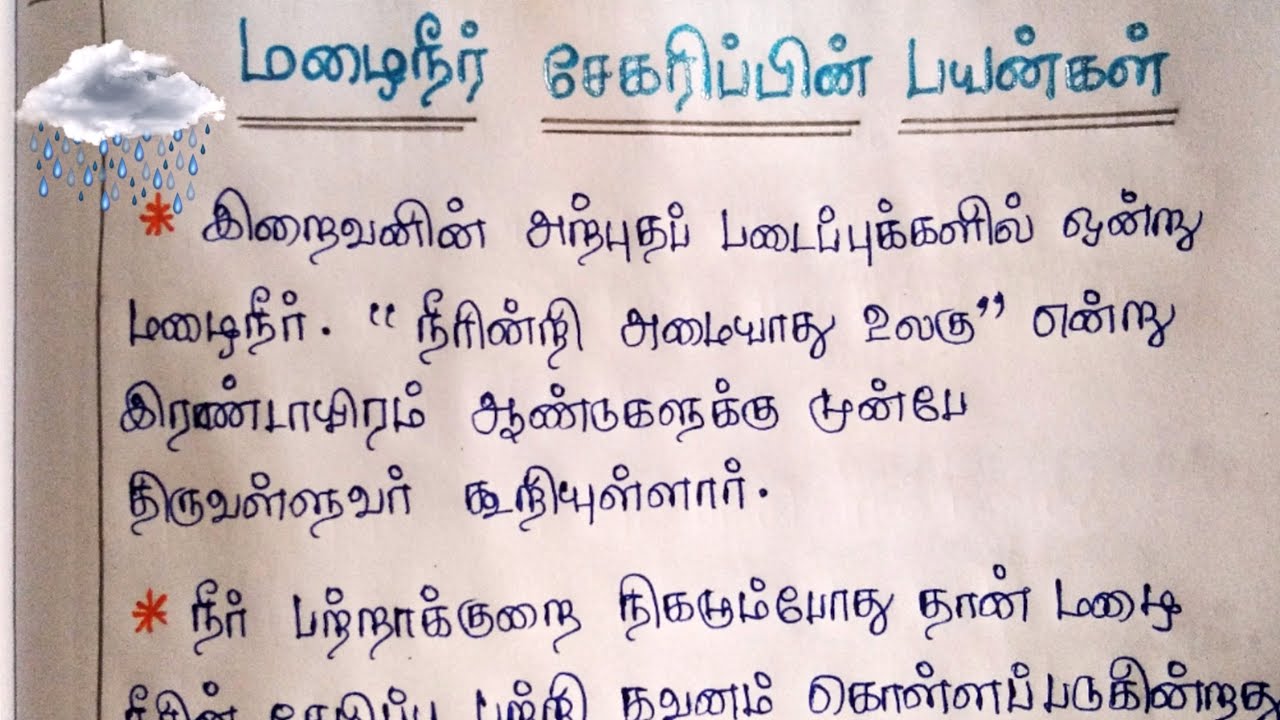 மழைநீர் சேகரிப்பின் பயன்கள்
* இறைவனின் அற்புதப் படைப்புக்களில் ஒன்று
மழைநீர். “நீரின்றி அமையாது உலகு” என்று
இரண்டாயிரம் ஆண்டுகளுக்கு முன்பே
திருவள்ளுவர் கூறியுள்ளார்.
* நீர் பற்றாக்குறை நிகழும்போது தான் மழை
பற்றி கவனம் கொள்ளப்படுகின்றது